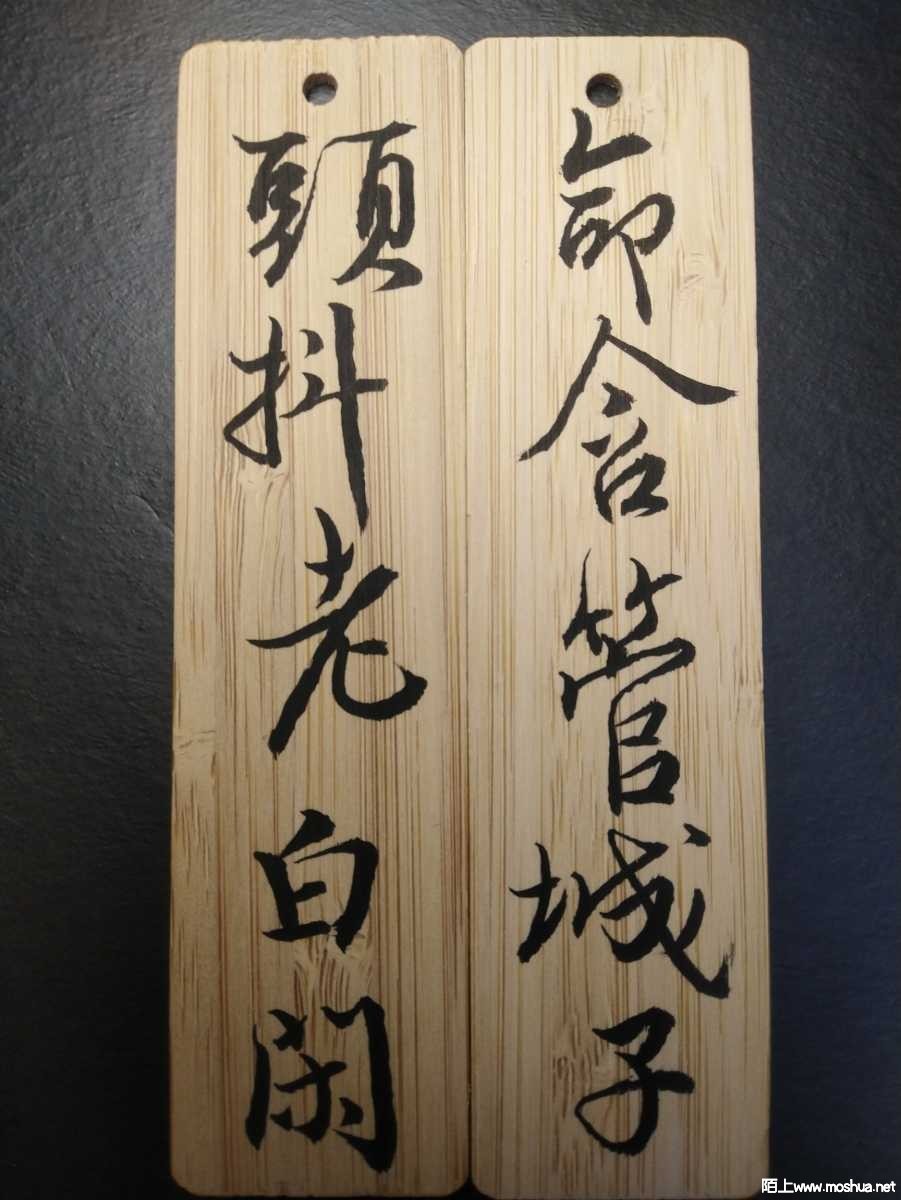 命含管城子
頭抖老白閑
陌上www.moshua.net